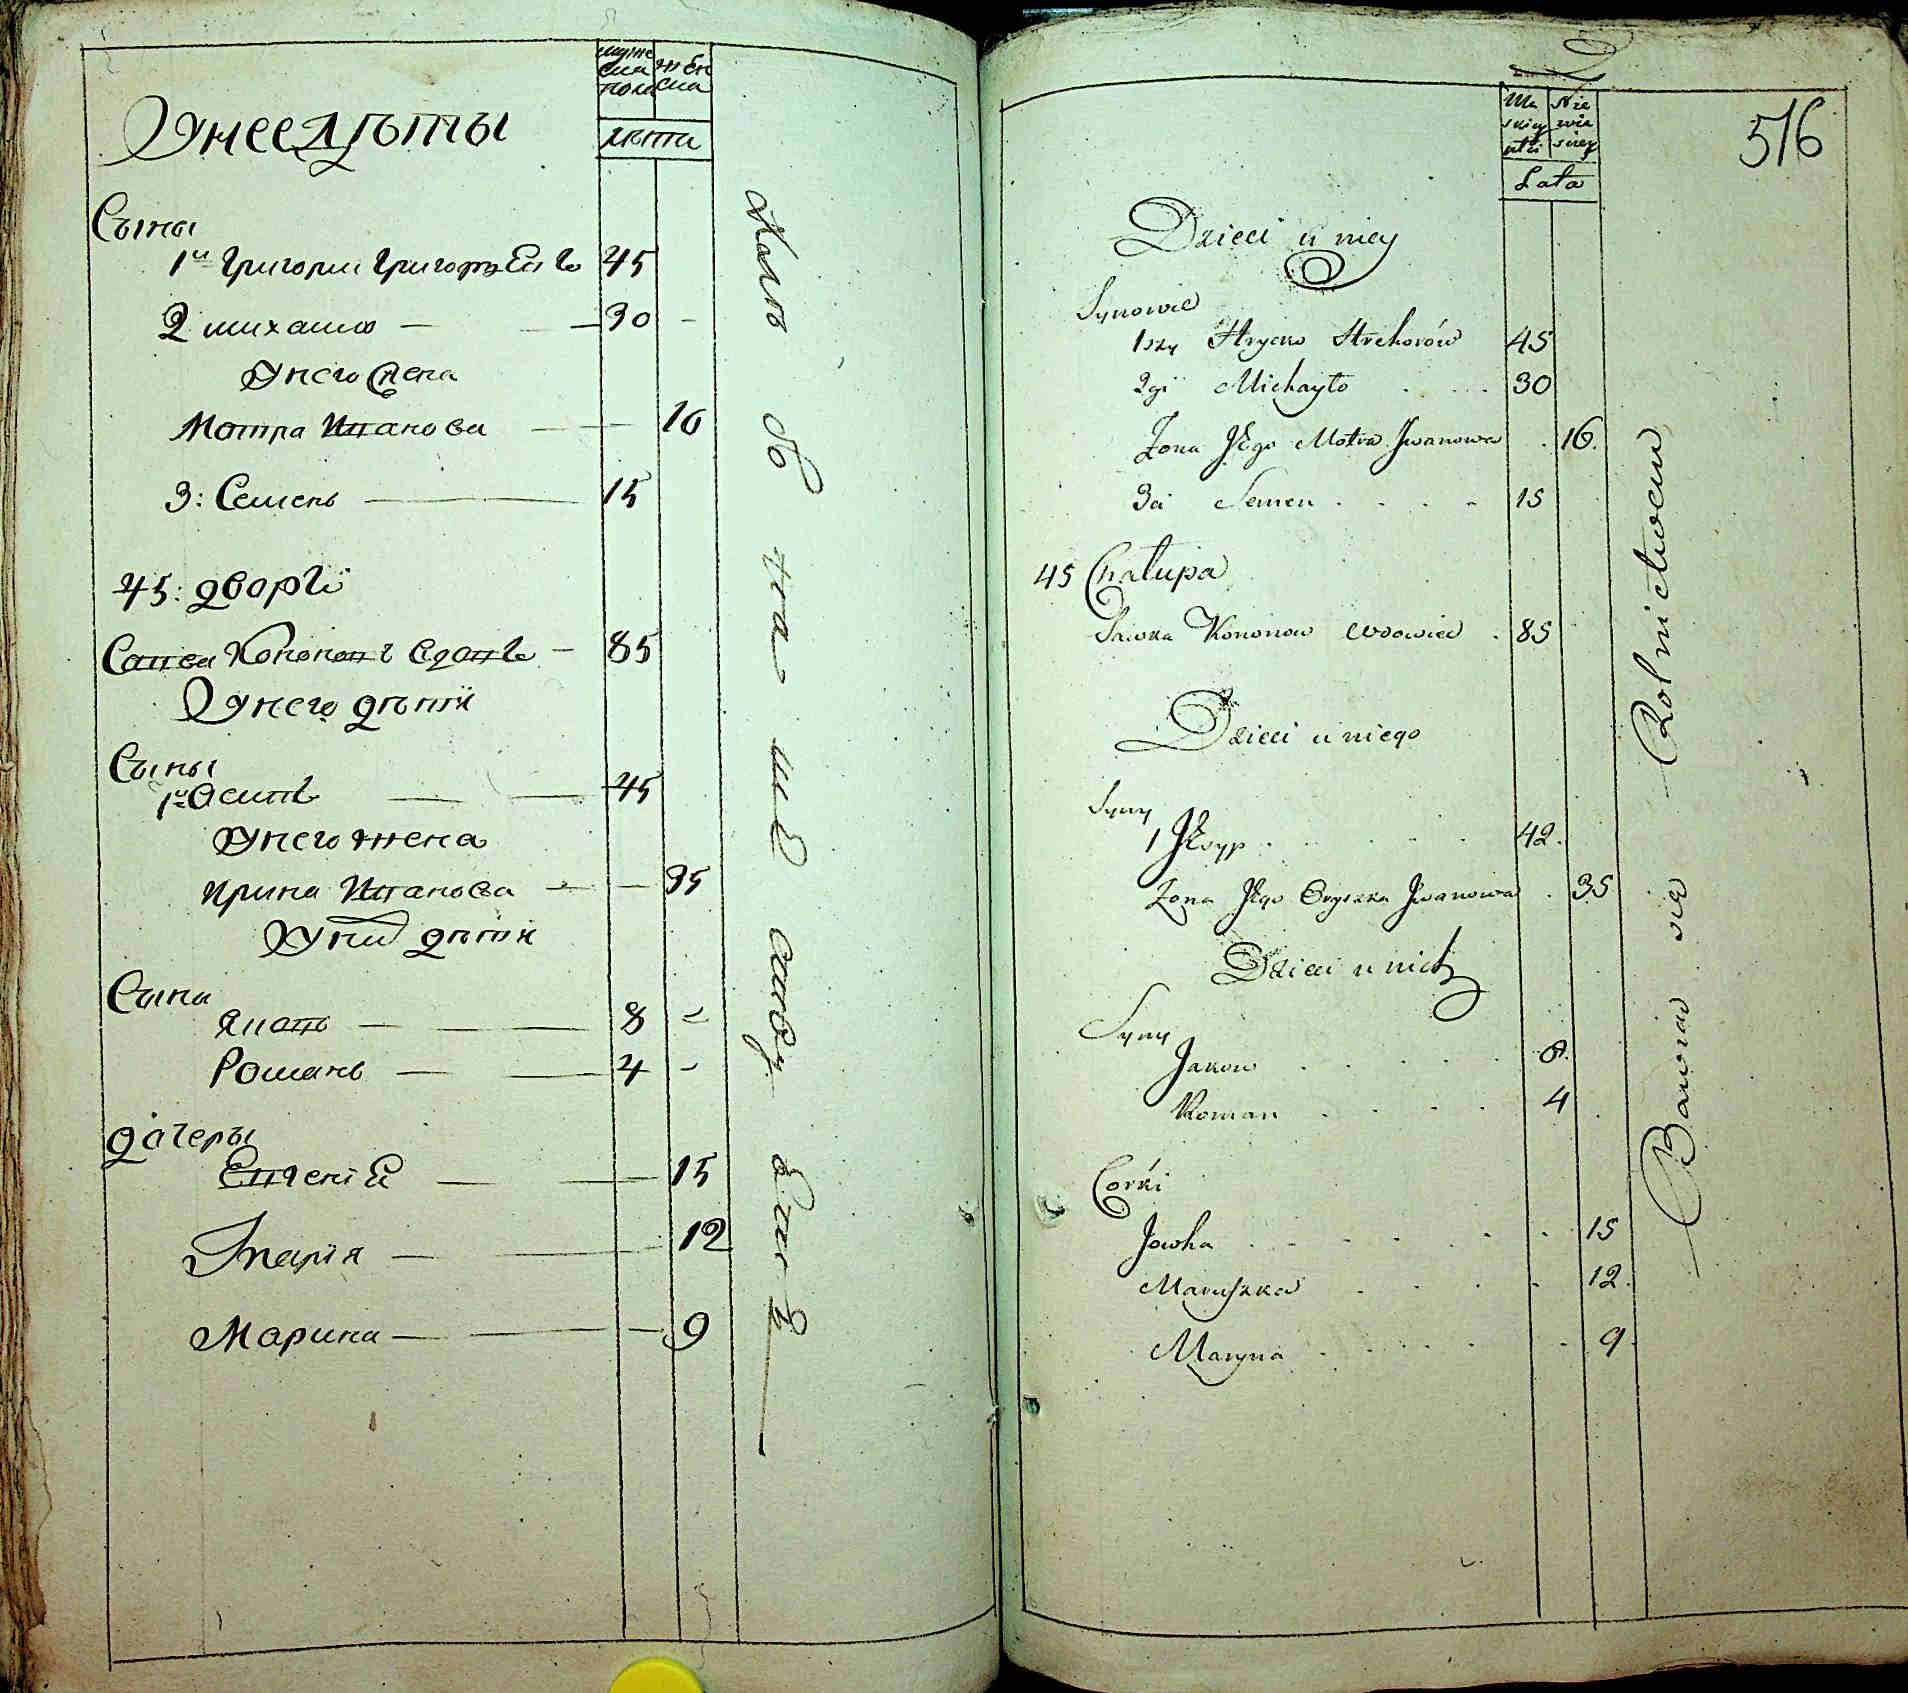 муже
ска
пола
жен
ска
лѣта
Унее дѣты
Сыны
1й Григории Григорьевъ 45
2 михаило 30
Унего жена
Мотра Иванова 16
3: Семенъ 15
45: дворъ
Савка Кононовъ вдовъ 85
Унего дѣти
Сыны
1й Осипъ 45
Унего жена
Ирина Иванова 35
Уних дѣти
Сына
Яковъ 8
Романъ 4
дочеры
Евгения 15
Мария 12
Марина 9
516
Ma
skiey
płci
Nie
wie
sciey
Lata
Dzieci u niey
Synowie
1szy Hrycko Hrehorów 45
2gi Michayło 30
Zona Jego Motra Jwanowa 16
3ci Semen 15
45 Chałupa
Sawka Kononow wdowiec 85
Dzieci u niego
Syny
1 Josyp 42
Zona Jego Oryszka Jwanowa 35
Dzieci u nich
Syny
Jakow 8
Roman 4
Corki
Jowha 15
Maruszka 12
Maryna 9
Bawia się Rolnictwem